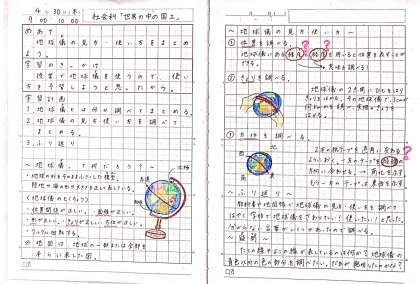 4/30(木)
9:00 10:00
社会科「世界の中の国土」
めあて
地球儀の見方・使い方をまとめよう。
学習のきっかけ
授業で地球儀を使うので、使い方を予習しようと思ったから。
学習計画
1 地球儀とは何か調べてまとめる。
2 地球儀の見方・使い方を調べてまとめる。
3 ふり返り
～地球儀って何だろう?～
・地球の形をそのまま小さくした模型。
陸地や海の形や
(地球儀のとくちょう)
・位置関係が正しい。・面積が正しい。
・形が正しい。・きょりが正しい・方位が正しい。
・クルクル回転する。
※地図は地球の一部または全部を平らに表した図。
北極
赤道
～地球儀の見方・使い方～
① 位置を調べる。
地球儀にある緯線?、経線?を用いると位置を表すことができる。
→意味を調べる!
② きょりを調べる。
地球儀の2点間にひもをはり
① 方位を調べる。
北
西
東
南
2本の紙テープを直角に交わる
?
→南北を示す
もう一方のテープは東西を示す
～ふり返り～
教科書や地図帳で地球儀の見方・使い方を調べて
はやく学校で地球儀をさわりたい!使いたい!と思った。
分からない言葉がいくつかあったので調べる。
～疑問～
たての線やよこの線が表しているのは何か?地球儀の